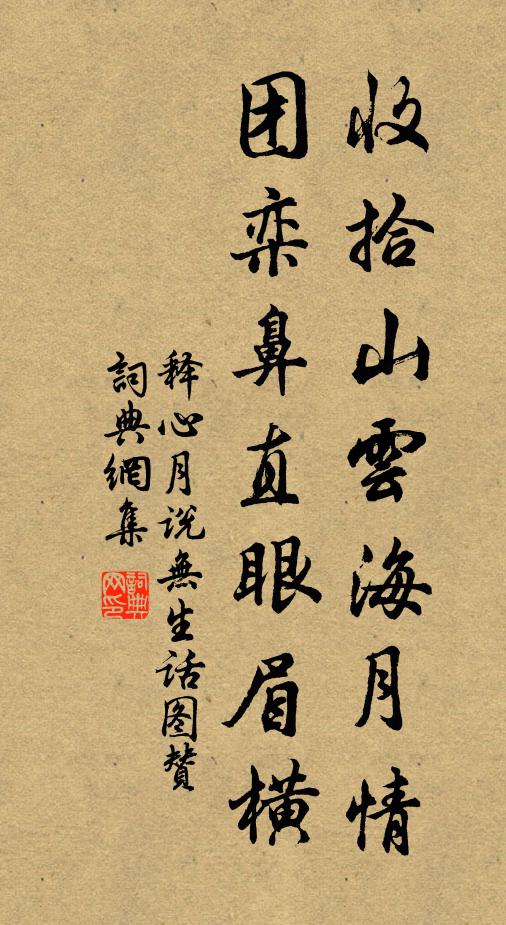 收拾山雲海月情
团栾鼻直眼眉横
释心月说無生话图赞
詞典網集
詞典网印